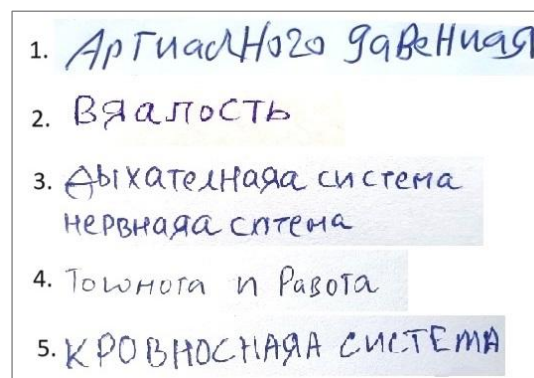 1. Артиалного давенная
2. Вяалость
3. Дыхателнаяа система
нервнаяа сптема
4. Тошнота и Равота
5. КРОВНОСНАЯА СИСТЕМА